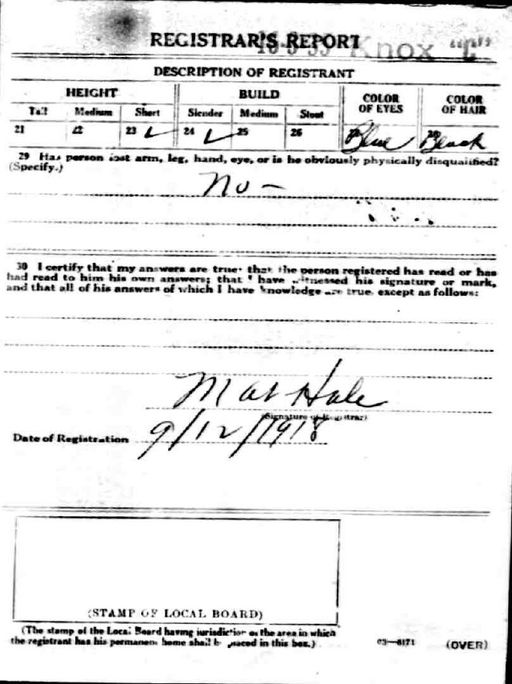 REGISTRAR'S REPORT
Knox "C"
DESCRIPTION OF REGISTRANT
HEIGHT BUILD COLOR OF EYES COLOR OF HAIR
Tall Medium Short Slender Medium Stout
21 22 23 ✓ 24 ✓ 25 26 Blue Black
29 Has person lost arm, leg, hand, eye, or is he obviously physically disqualified?
(Specify.)
No -
30 I certify that my answers are true; that the person registered has read or has
had read to him his own answers; that I have witnessed his signature or mark,
and that all of his answers of which I have knowledge are true, except as follows:
Hale
(Signature of Registrar)
Date of Registration 9/12/1918
(STAMP OF LOCAL BOARD)
(The stamp of the Local Board having jurisdiction of the area in which
the registrant has his permanent home shall be placed in this box.)
03—6171 (OVER)